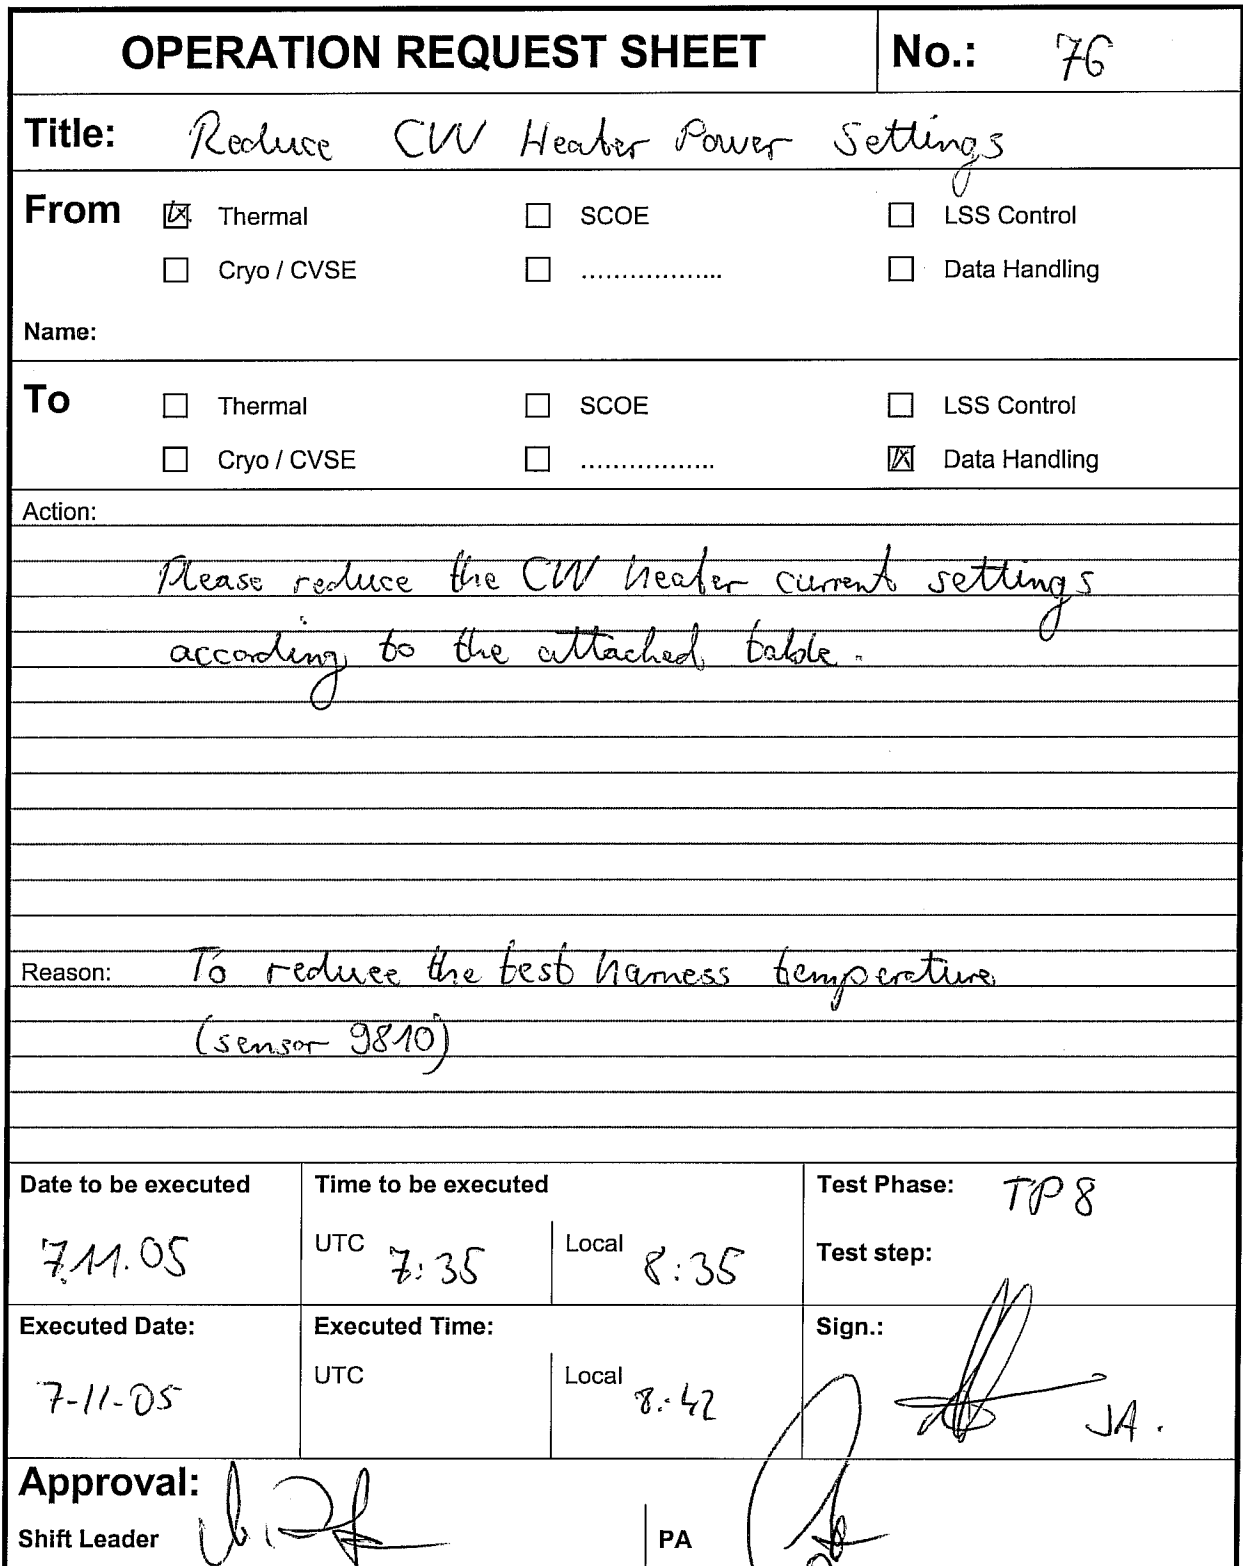 OPERATION REQUEST SHEET No.: 76
Title: Reduce CVV Heater Power Settings
From ☒ Thermal ☐ SCOE ☐ LSS Control
☐ Cryo / CVSE ☐ .................. ☐ Data Handling
Name:
To ☐ Thermal ☐ SCOE ☐ LSS Control
☐ Cryo / CVSE ☐ ................. ☒ Data Handling
Action:
Please reduce the CVV heater current settings
according to the attached table.
Reason: To reduce the test harness temperature
(sensor 9810)
Date to be executed Time to be executed Test Phase: TP 8
7.11.05 UTC 7:35 Local 8:35 Test step:
Executed Date: Executed Time: Sign.:
7-11-05 UTC Local 8:42 JA.
Approval:
Shift Leader PA